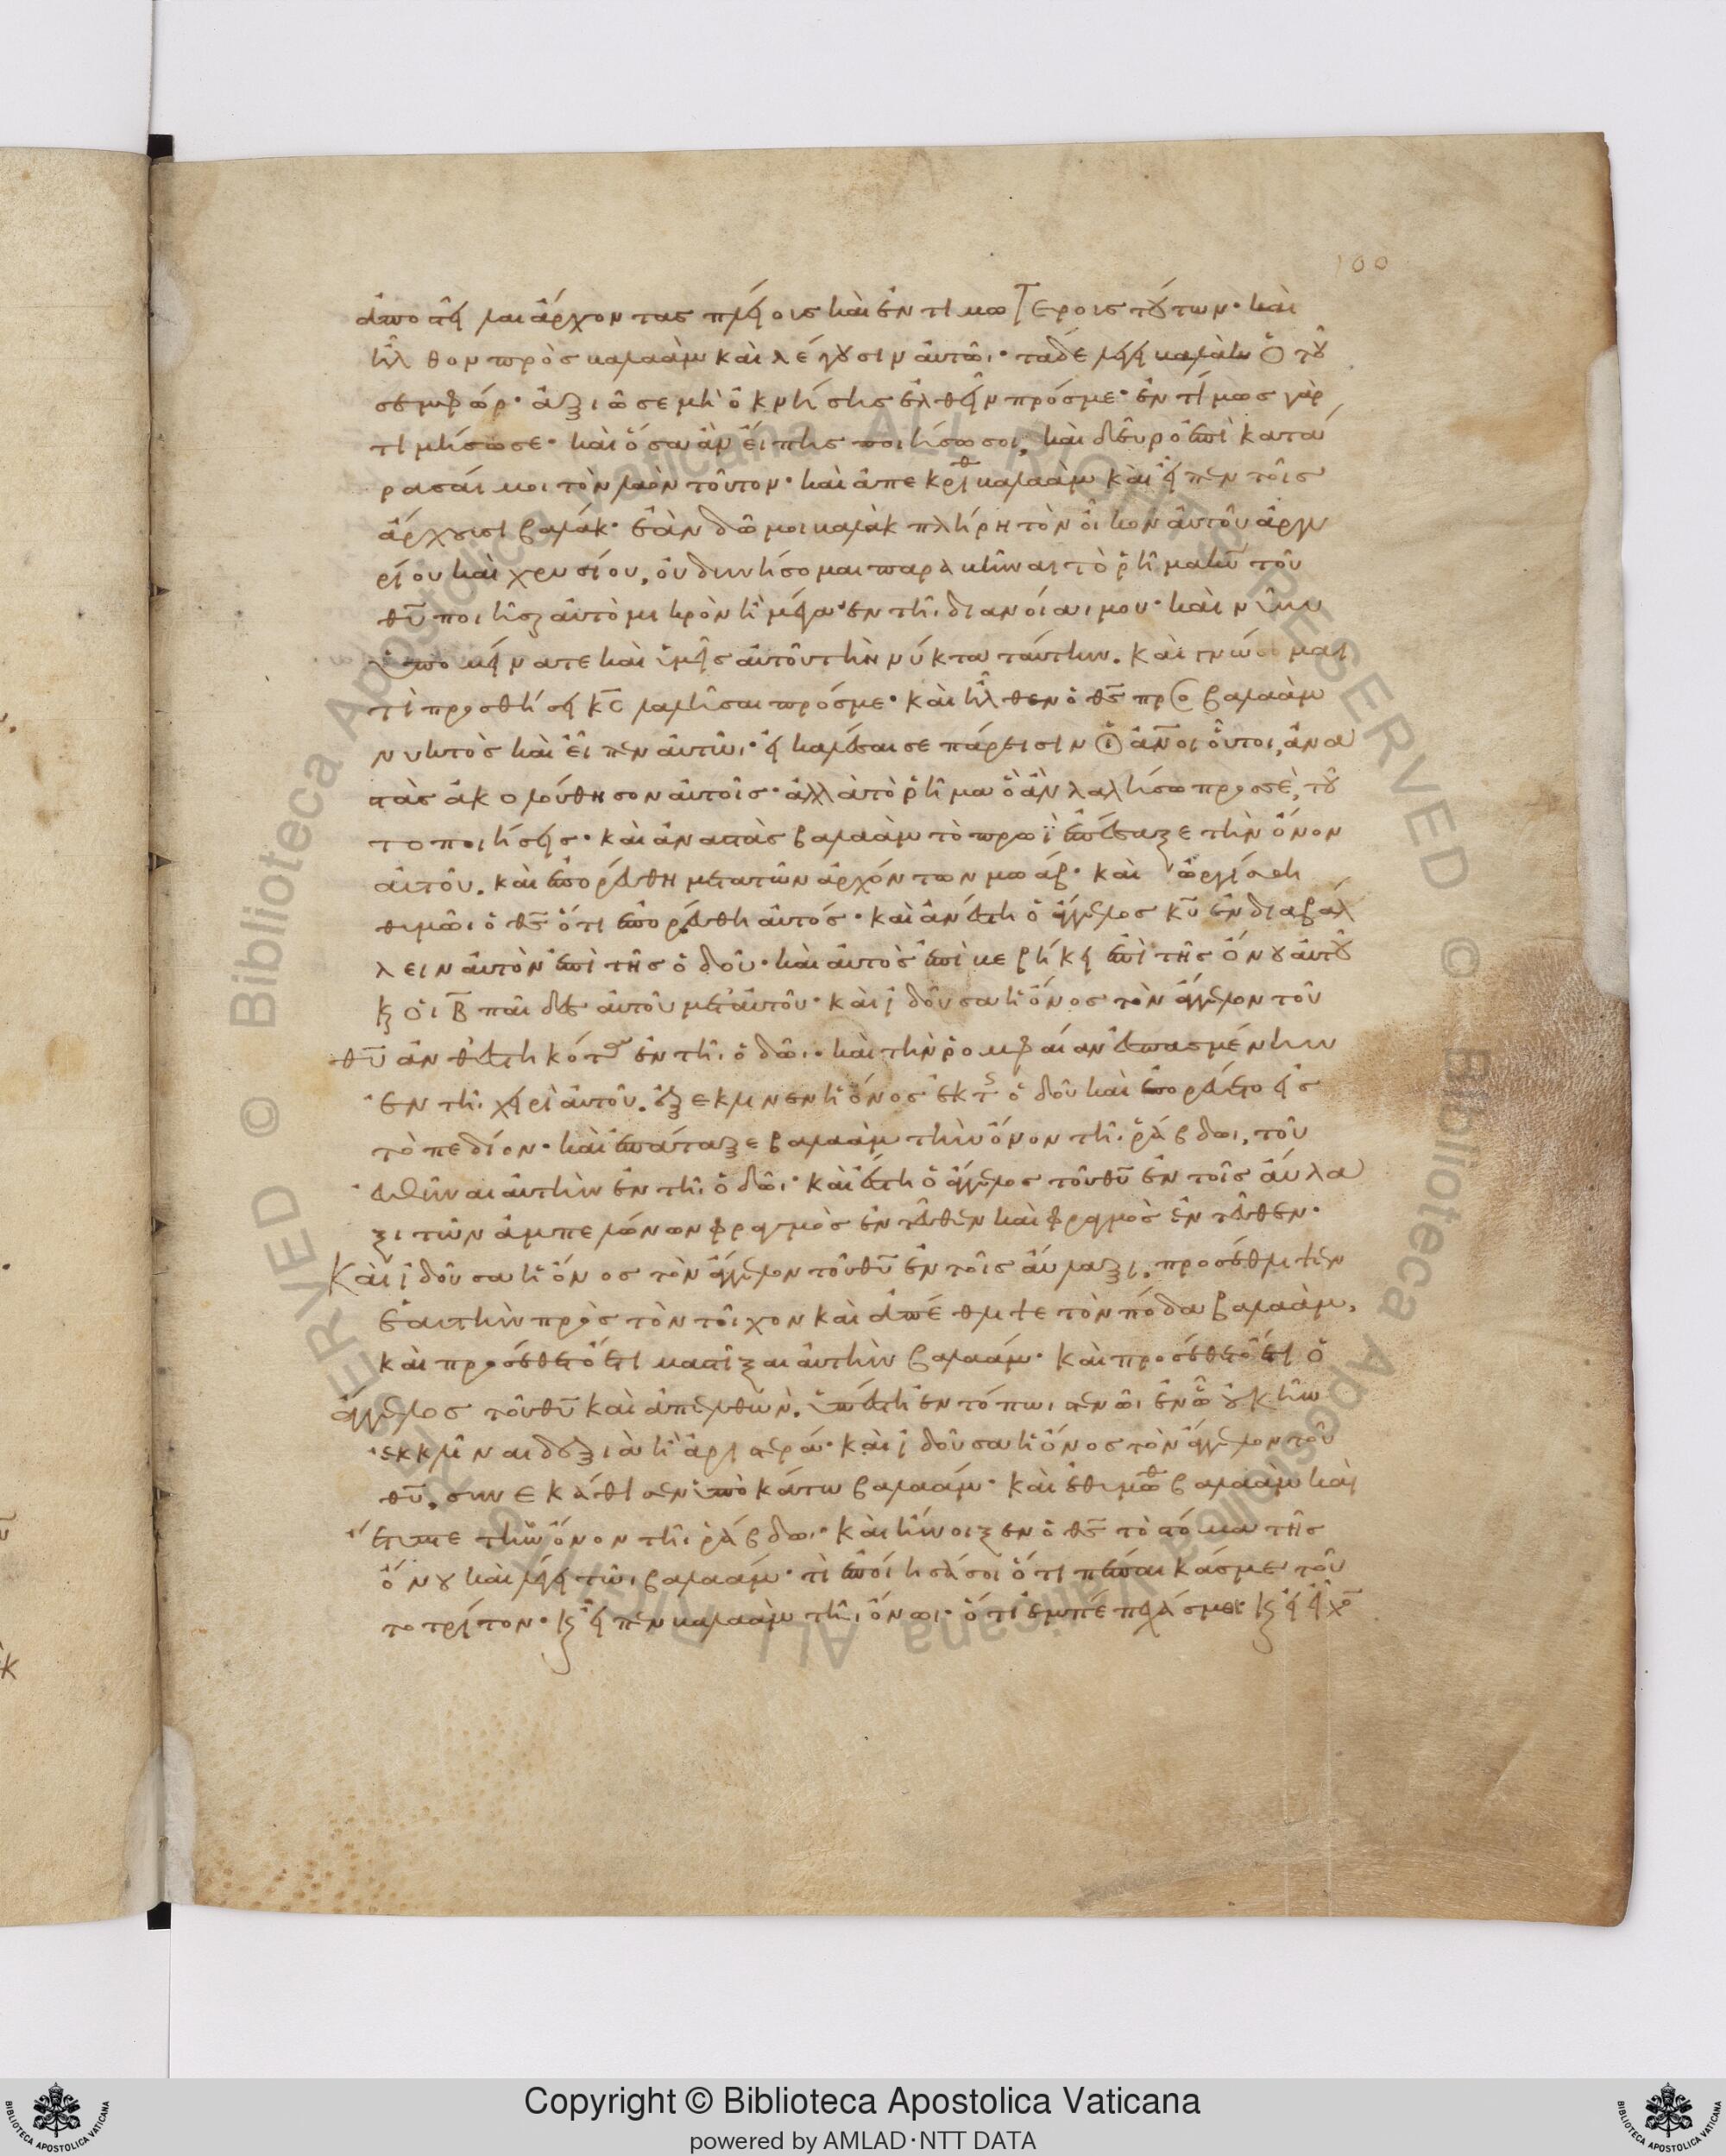 100
ἀποστεῖλαι ἄρχοντας πλείους καὶ ἐντιμωτέρους τούτων· καὶ
ἦλθον πρὸς βαλαὰμ καὶ λέγουσιν αὐτῶι· τάδε λέγει βαλὰκ ὁ τοῦ
σεμφώρ· ἀξιῶ σε μὴ ὀκνήσηις ἐλθεῖν πρόσμε· ἐντίμως γὰρ
τιμήσω σε· καὶ ὅσα ἂν εἴπηις ποιήσω σοι, καὶ δεῦρο ἐπικατά
ρασαί μοι τὸν λαὸν τοῦτον· καὶ ἀπεκρίθ βαλαὰμ καὶ εἶπεν τοῖς
ἄρχουσι βαλάκ· ἐὰν δῶ μοι βαλὰκ πλήρη τὸν οἶκον αὐτοῦ ἀργυ
ρίου καὶ χρυσίου, οὐ δυνήσομαι παραβῆναι τὸ ῥῆμα κῦ τοῦ
θῦ ποιῆσαι αὐτὸ μικρὸν ἢ μέγα ἐν τῆι διανοίαι μου· καὶ νῦν
ὑπομείνατε καὶ ὑμεῖς αὐτοῦ τὴν νύκτα ταύτην. καὶ γνώσομαι
τί προσθήσει κς λαλῆσαι πρόσμε· καὶ ἦλθεν ὁ θς πρὸ βαλαὰμ
νυκτὸς καὶ εἶπεν αὐτῶι· εἰ καλέσαι σε πάρεισιν οἱ ἄνοι οὗτοι, ἀνα
στὰς ἀκολούθησον αὐτοῖς· ἀλλὰ τὸ ῥῆμα ὃ ἂν λαλήσω προσσὲ, τοῦ
το ποιήσεις· καὶ ἀναστὰς βαλαὰμ τὸ πρωῒ ἐπέσαξε τὴν ὄνον
αὐτοῦ. καὶ ἐπορεύθη μετὰ τῶν ἀρχόντων μωάβ· καὶ ὠργίσθη
θυμῶι ὁ θς ὅτι ἐπορεύθη αὐτός· καὶ ἀνέστη ὁ ἄγγελος κῦ ἐνδιαβάλ
λειν αὐτὸν ἐπὶ τῆς ὁδοῦ· καὶ αὐτὸς ἐπιβεβήκει ἐπὶ τῆς ὄνου αὐτοῦ
κ οἱ β παῖδες αὐτοῦ μετ' αὐτοῦ· καὶ ἰδοῦσα ἡ ὄνος τὸν ἄγγελον τοῦ
θῦ ἀνθεστηκότα ἐν τῆι ὁδῶι· καὶ τὴν ῥομφαίαν ἐσπασμένην
ἐν τῆι χειρὶ αὐτοῦ. ἐξέκλινεν ἡ ὄνος ἐκ τς ὁδοῦ καὶ ἐπορεύετο εἰς
τὸ πεδίον· καὶ ἐπάταξε βαλαὰμ τὴν ὄνον τῆι ῥάβδωι, τοῦ
εὐθῦναι αὐτὴν ἐν τῆι ὁδῶι· καὶ ἔστη ὁ ἄγγελος τοῦ θῦ ἐν τοῖς αὔλα
ξι τῶν ἀμπελώνων φραγμὸς ἐντεῦθεν καὶ φραγμὸς ἐντεῦθεν·
Καὶ ἰδοῦσα ἡ ὄνος τὸν ἄγγελον τοῦ θῦ ἐν τοῖς αὔλαξι, προσέθλιψεν
ἑαυτὴν πρὸς τὸν τοῖχον καὶ ἀπέθλιψε τὸν πόδα βαλαάμ,
καὶ προσέθετο ἔτι μαστίξαι αὐτὴν βαλαάμ· καὶ προσέθετο ἔτι ὁ
ἄγγελος τοῦ θῦ καὶ ἀπελθὼν. ὑπέστη ἐν τόπωι στενῶι ἐν ὧ οὐκ ἦν
ἐκκλῖναι δεξιὰ ἢ ἀριστερά· καὶ ἰδοῦσα ἡ ὄνος τὸν ἄγγελον τοῦ
θῦ. συνεκάθισεν ὑποκάτω βαλαάμ· καὶ ἐθυμώθ βαλαὰμ καὶ
ἔτυπτε τὴν ὄνον τῆι ῥάβδωι· καὶ ἤνοιξεν ὁ θς τὸ στόμα τῆς
ὄνου καὶ λέγει τῶι βαλαάμ· τί ἐποίησά σοι ὅτι πέπαικάς με τοῦ
το τρίτον· κ εἶπεν βαλαὰμ τῆι ὄνωι· ὅτι ἐμπέπαιχάς μοι· κ εἰ εἶχο
Copyright © Biblioteca Apostolica Vaticana
powered by AMLAD·NTT DATA